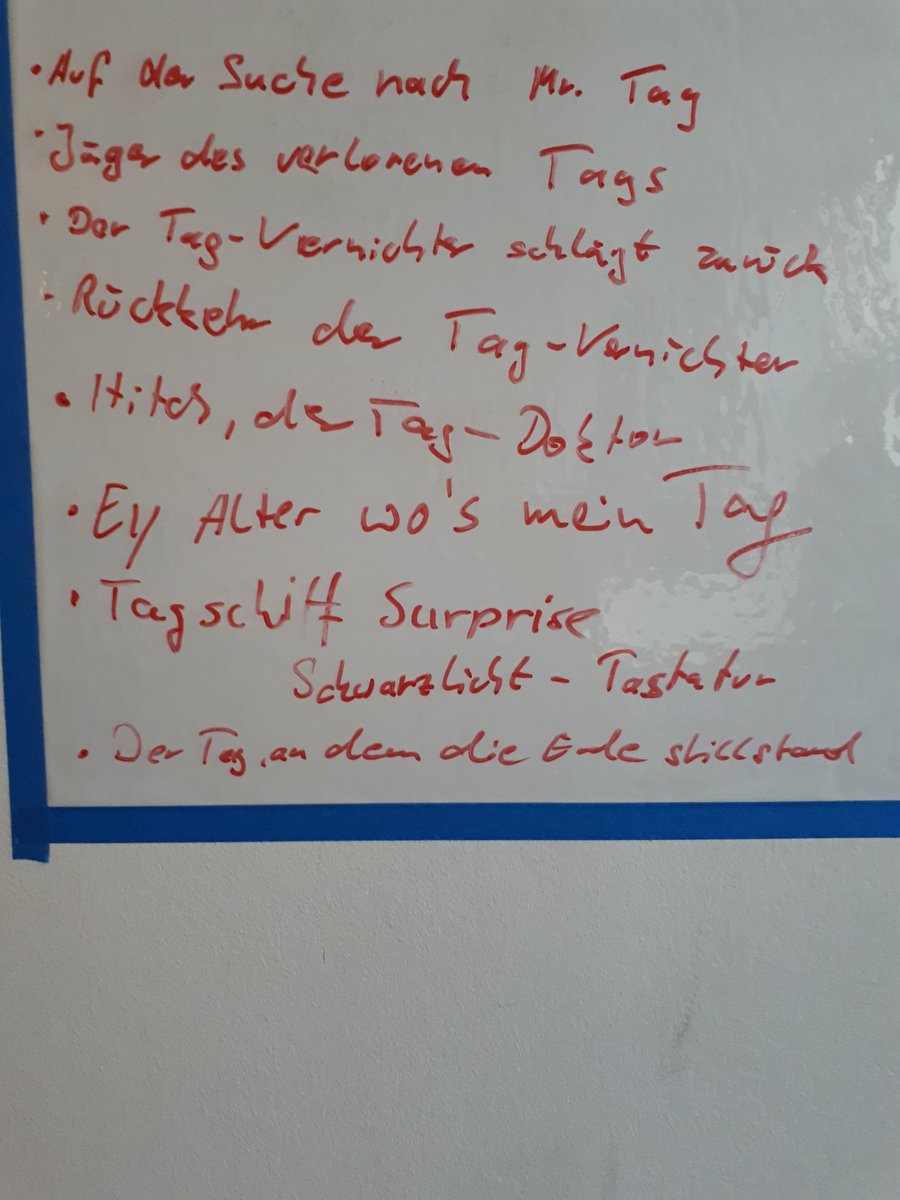 · Auf der Suche nach Mr. Tag
· Jäger des verlorenen Tags
· Der Tag-Vernichter schlägt zurück
· Rückkehr der Tag-Vernichter
· Hitch, der Tag-Doktor
· Ey Alter wo's mein Tag
· Tagschiff Surprise
Schwarzlicht - Tastatur
· Der Tag, an dem die Erde stillstand